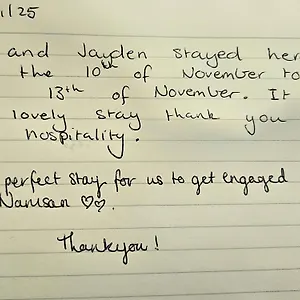 1/25
and Jayden stayed her
the 10th of November to
13th of November. It
lovely stay thank you
hospitality.
perfect stay for us to get engaged
♡♡.
Thankyou!